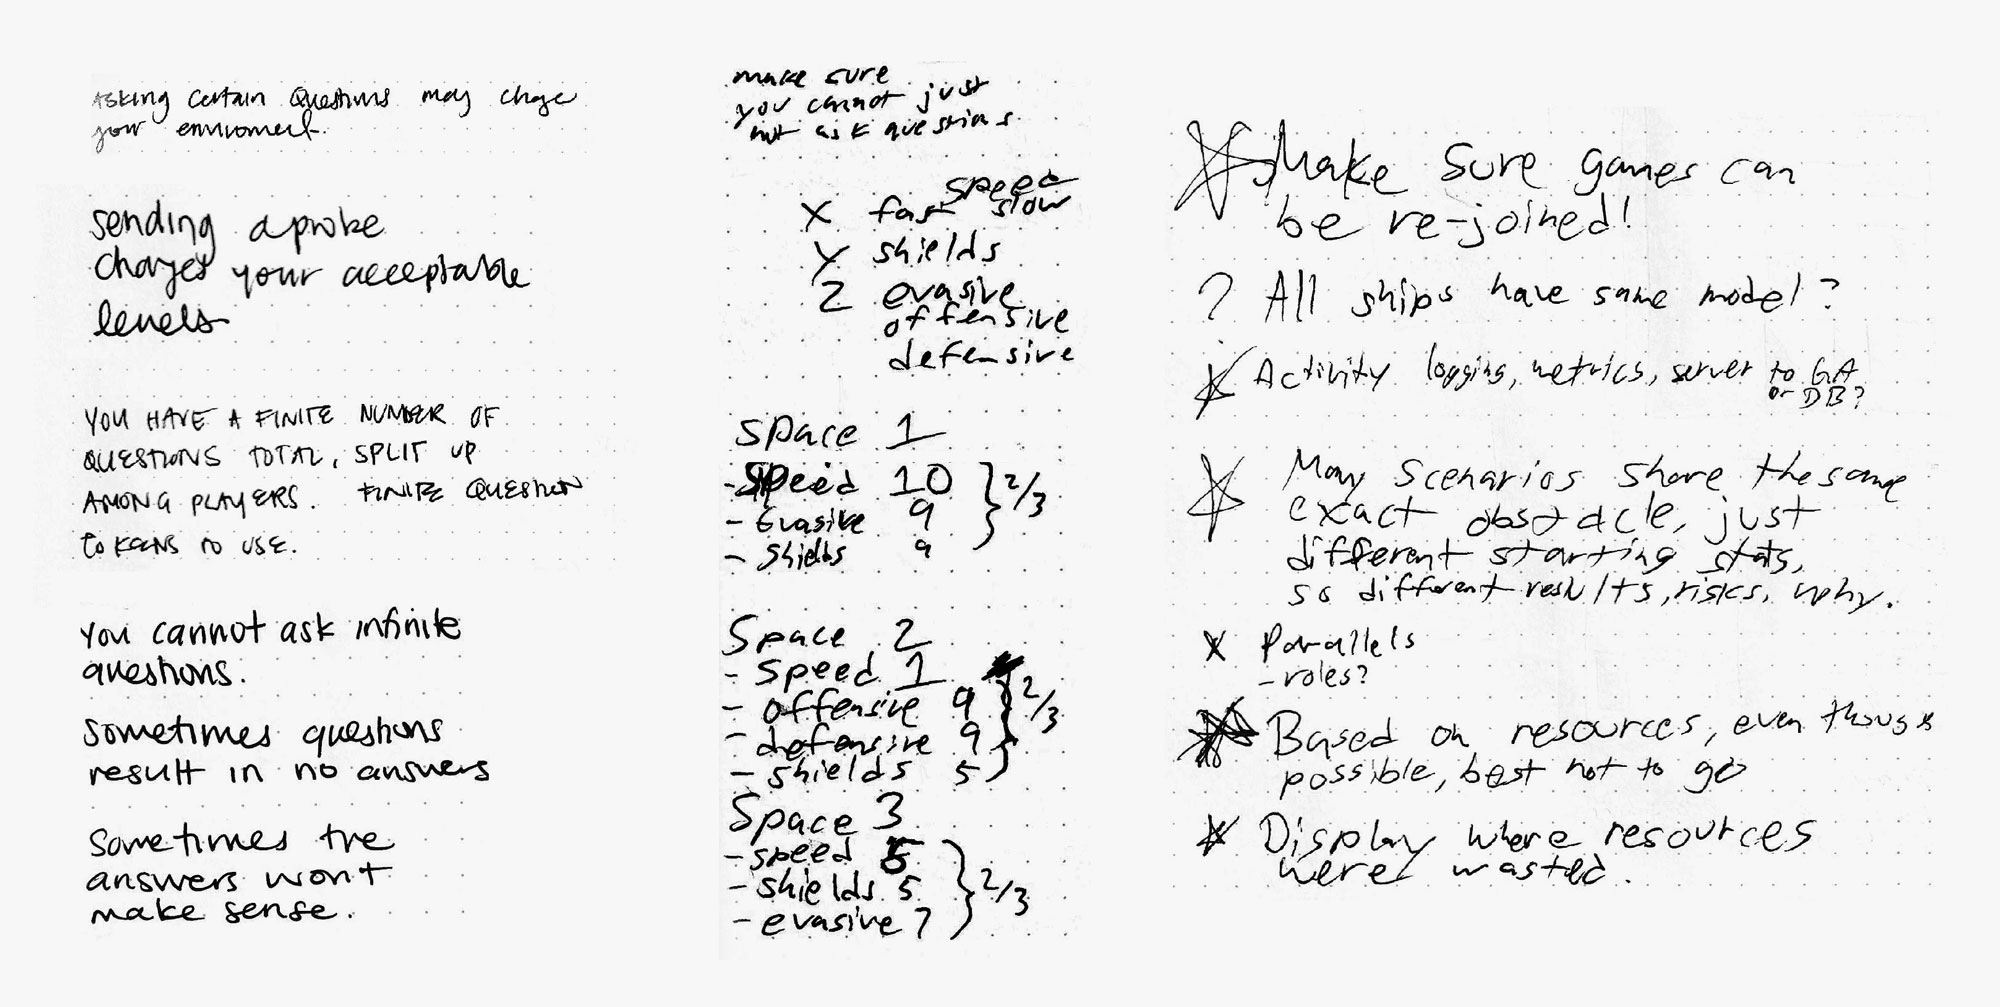 Asking certain Questions may change
your enviroment.
sending a probe
changes your acceptable
levels
YOU HAVE A FINITE NUMBER OF
QUESTIONS TOTAL, SPLIT UP
AMONG PLAYERS. FINITE QUESTION
TOKENS TO USE.
You cannot ask infinite
questions.
Sometimes questions
result in no answers
Sometimes the
answers wont
make sense.
make sure
you cannot just
not ask questions
speed
X fast slow
Y shields
Z evasive
offensive
defensive
Space 1
- Speed 10
- Evasive 9 } 2/3
- shields 9
Space 2
- speed 1
- offensive 9 } 2/3
- defensive 9
- shields 5
Space 3
- speed 5
- shields 5 } 2/3
- evasive 7
Make sure games can
be re-joined!
? All ships have same model?
Activity logging, metrics, server to GA
or DB?
Many scenarios share the same
exact obstacle, just
different starting stats,
so different results, risks, why.
X Parallels
- roles?
Based on resources, even though
possible, best not to go
Display where resources
were wasted.